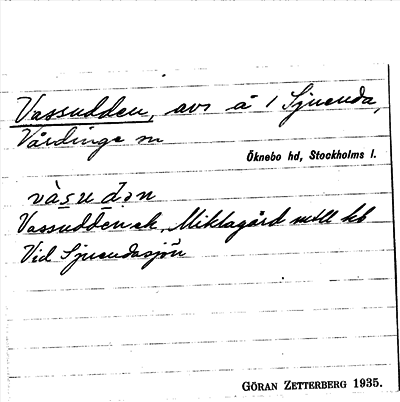 Vassudden, avs å 1 Sjuenda,
Vårdinge sn
Öknebo hd, Stockholms l.
vàsudən
Vassudden ek, Miklagård
Vid Sjuendasjön
GÖRAN ZETTERBERG 1935.